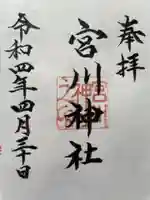 奉拝
宮川神社
令和四年四月三十日